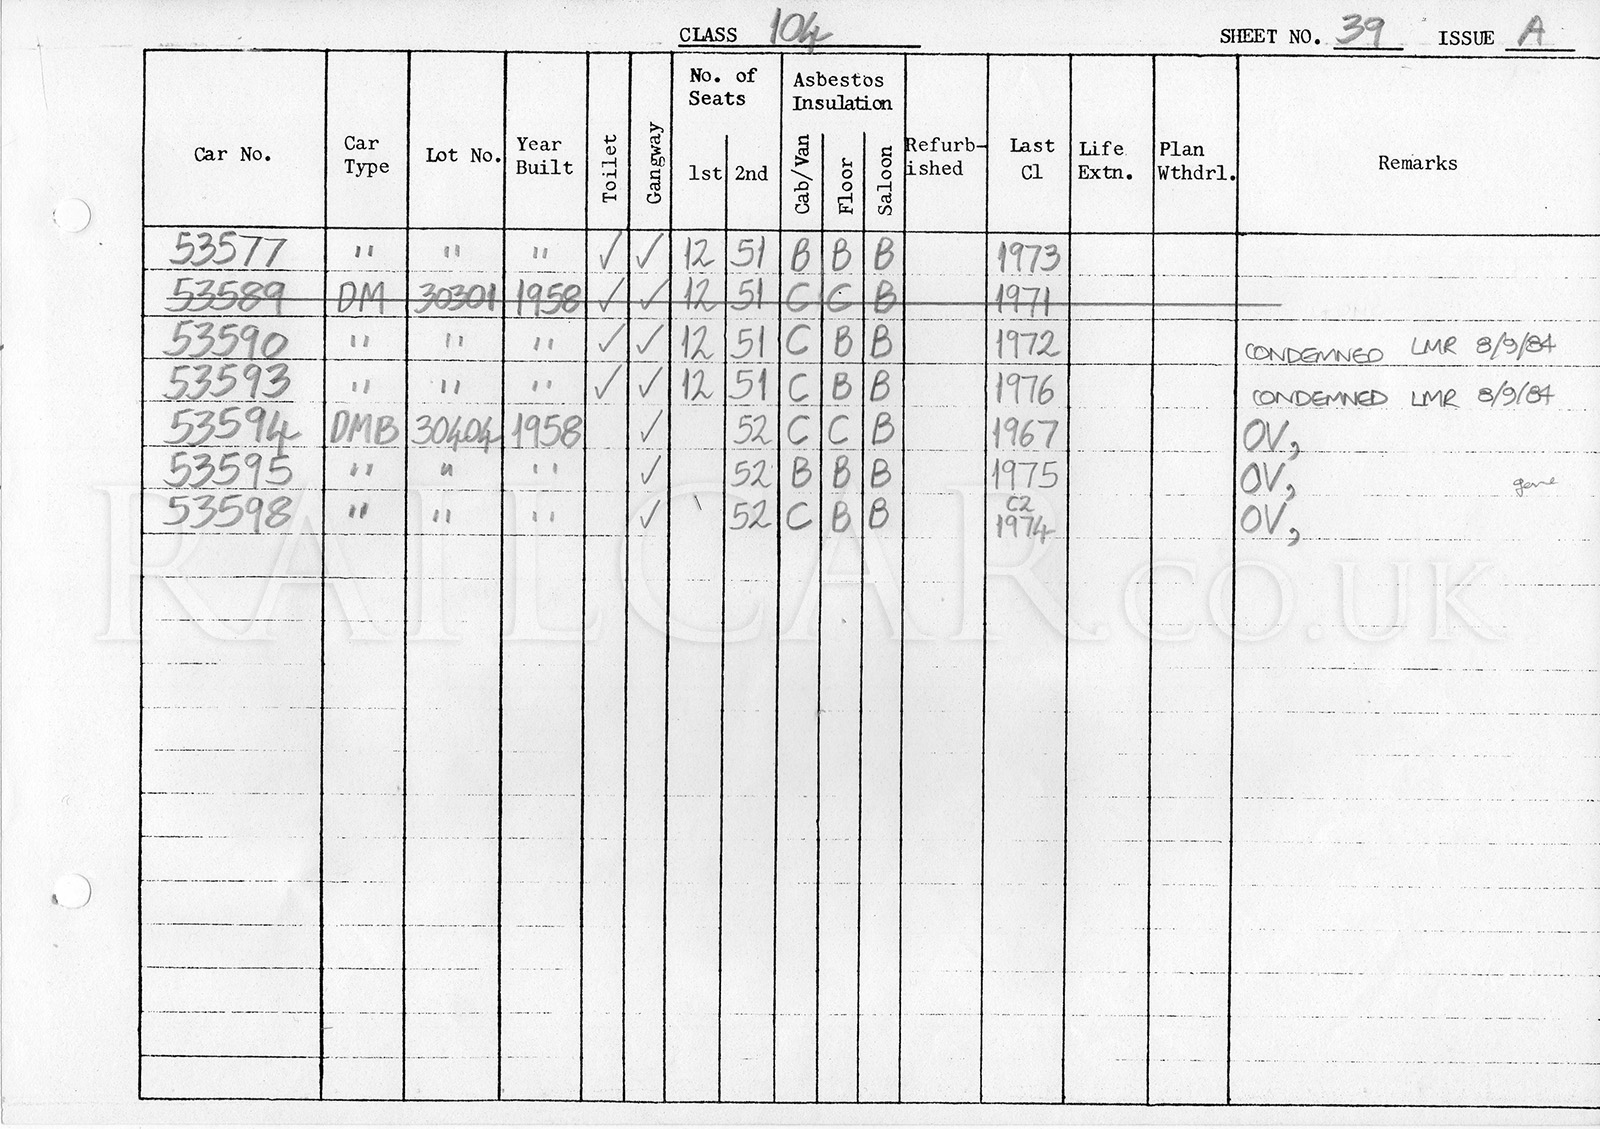 CLASS 104 SHEET NO. 39 ISSUE A
No. of Seats Asbestos Insulation
Car No. Car Type Lot No. Year Built Toilet Gangway 1st 2nd Cab/Van Floor Saloon Refurb-ished Last Cl Life Extn. Plan Wthdrl. Remarks
53577 " " " ✓ ✓ 12 51 B B B 1973
53589 DM 30301 1958 ✓ ✓ 12 51 C C B 1971
53590 " " " ✓ ✓ 12 51 C B B 1972 CONDEMNED LMR 8/9/84
53593 " " " ✓ ✓ 12 51 C B B 1976 CONDEMNED LMR 8/9/84
53594 DMB 30404 1958 ✓ 52 C C B 1967 OV,
53595 " " " ✓ 52 B B B 1975 OV, gone
53598 " " " ✓ 52 C B B C2 1974 OV,
RAILCAR.CO.UK